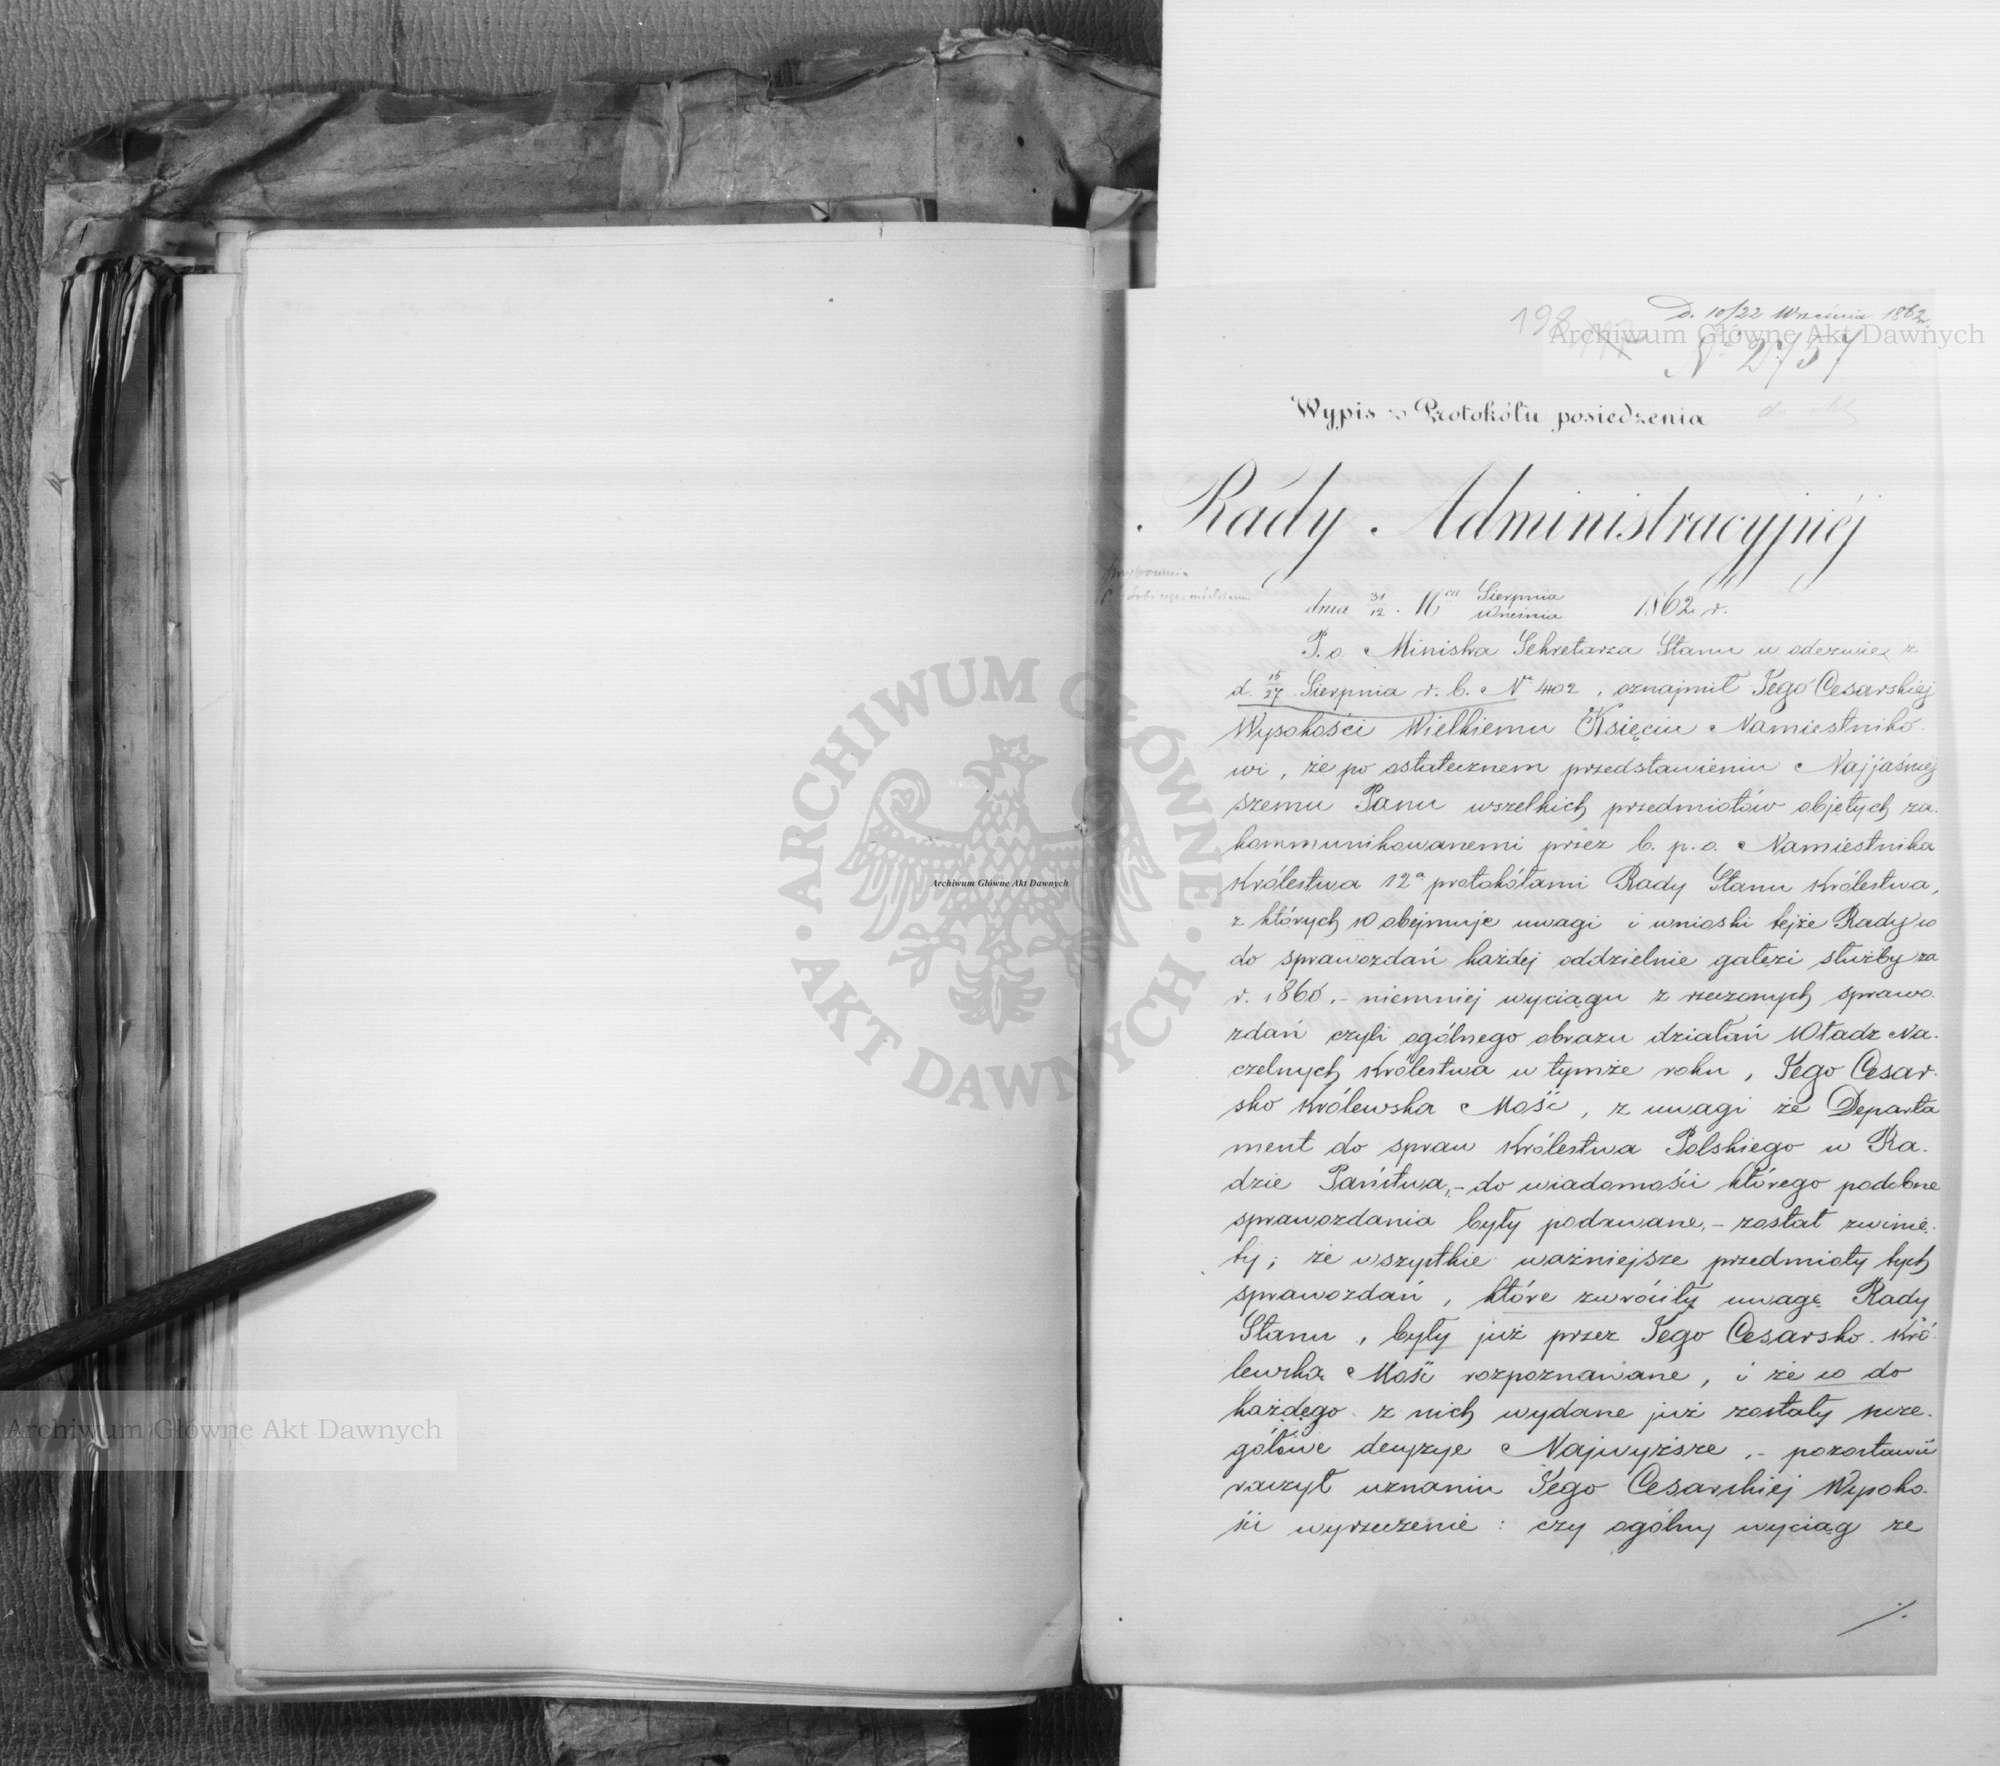 D. 10/22 Września 1862 r.
198
Nº 2757
Wypis z Protokółu posiedzenia
Rady Administracyjnéj
dnia 31/12 Mca Sierpnia/Września 1862 r.
P. o. Ministra Sekretarza Stanu w odezwie z
d. 15/27 Sierpnia r. b. Nº 402, oznajmił Jego Cesarskiej
Wysokości Wielkiemu Księciu Namiestniko-
wi, że po ostatecznem przedstawieniu Najjaśniej
szemu Panu wszelkich przedmiotów objętych za-
kommunikowanemi przez b. p. o. Namiestnika
Królestwa 12a protokółami Rady Stanu Królestwa,
z których 10 obejmuje uwagi i wnioski tejże Rady co
do sprawozdań każdej oddzielnie gałęzi służby za
r. 1860, - niemniej wyciągu z rzeczonych sprawo-
zdań czyli ogólnego obrazu działań Władz Na-
czelnych Królestwa w tymże roku, Jego Cesar-
sko Królewska Mość, z uwagi że Departa
ment do spraw Królestwa Polskiego w Ra-
dzie Państwa, - do wiadomości którego podobne
sprawozdania były podawane, - został zwinię-
ty; że wszystkie ważniejsze przedmioty tych
sprawozdań, które zwróciły uwagę Rady
Stanu, były już przez Jego Cesarsko-Kró-
lewską Mość rozpoznawane, i że co do
każdego z nich wydane już zostały szcze-
gółowe decyzye Najwyższe, - pozostawić
raczył uznaniu Jego Cesarskiej Wysoko-
ści wyrzeczenie: czy ogólny wyciąg ze
./.
Archiwum Główne Akt Dawnych
ARCHIWUM GŁÓWNE · AKT DAWNYCH ·
Archiwum Główne Akt Dawnych
Archiwum Główne Akt Dawnych